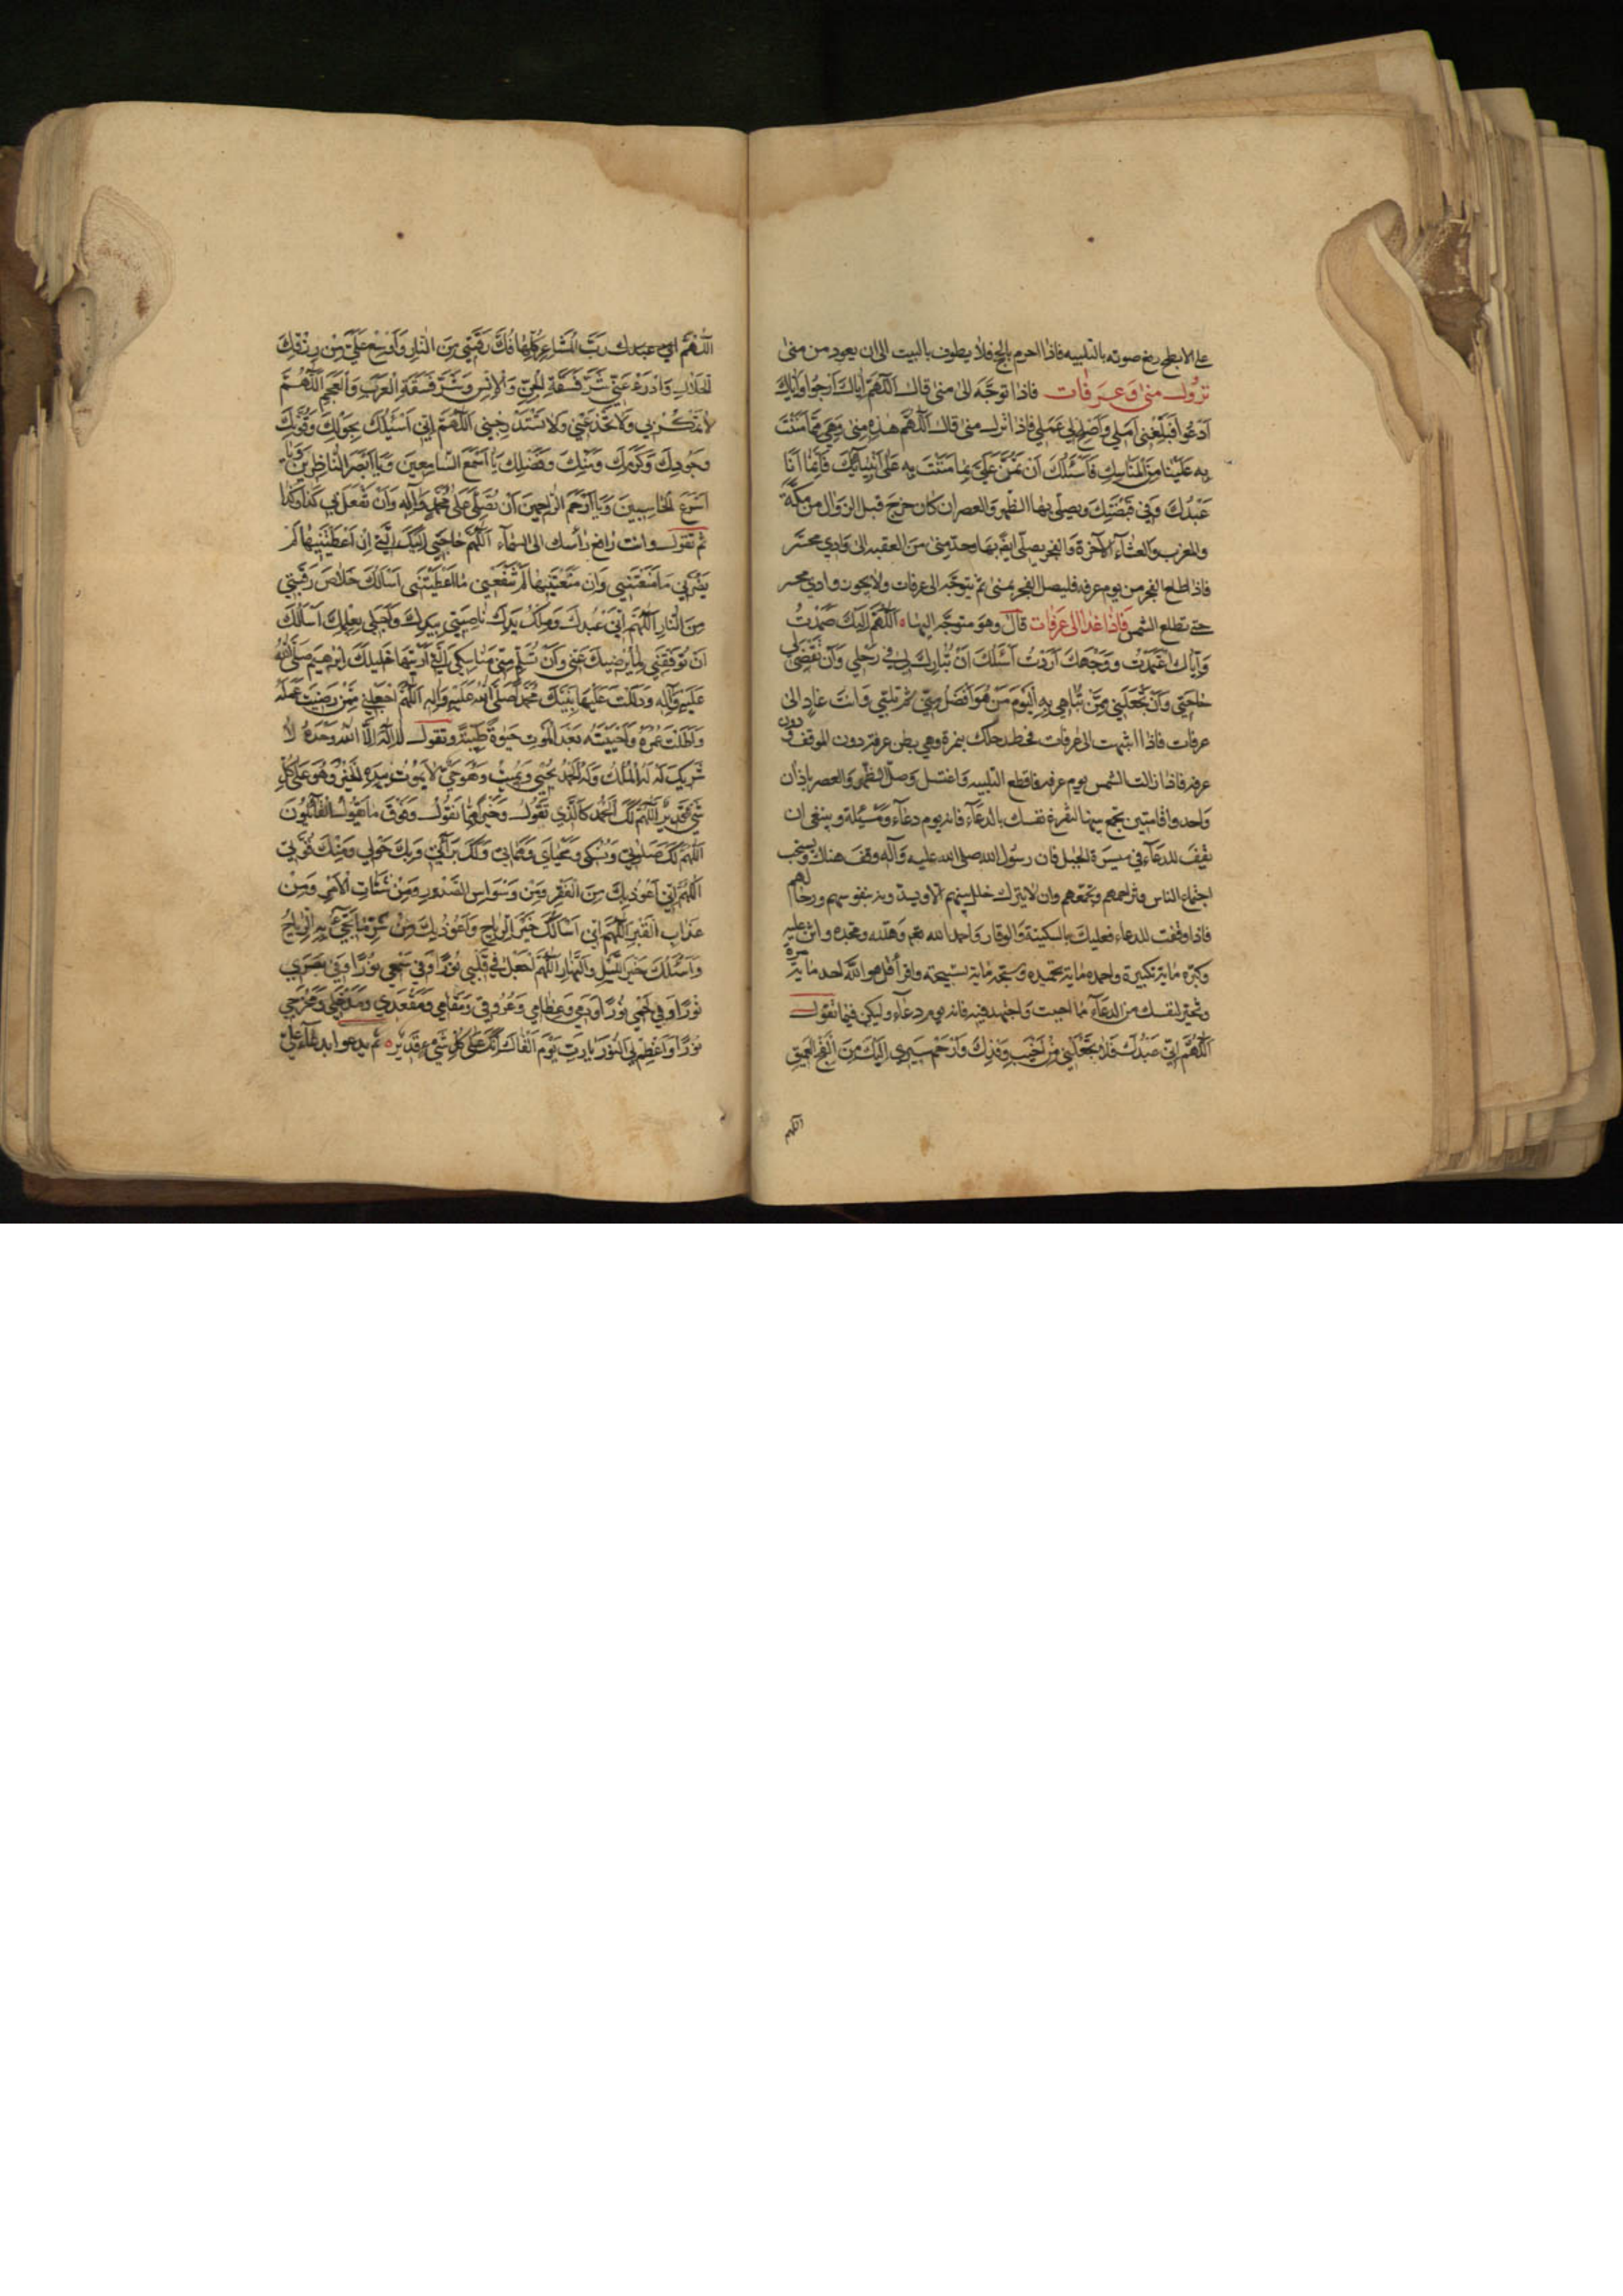 على الابطح رفع صوته بالتلبيه فاذا احرم بالحج فلا يطوف بالبيت الى ان يعود من منىٰ
نزول منىٰ وعرفات فاذا توجّه الى منىٰ قال اَللّٰهُمَّ اِيّاكَ اَرْجُوا وَاِيّاكَ
اَدْعُوا فَبَلِّغْنى اَمَلي وَاَصْلِحْ لي عَمَلي فاذا نزل منىٰ قال اَللّٰهُمَّ هٰذِهِ مِنىٰ وَهِيَ مِمّا مَنَنْتَ
بِهِ عَلَيْنا مِنَ الْمَناسِكِ فَاَسْئَلُكَ اَنْ تَمُنَّ عَلَيَّ بِما مَنَنْتَ بِهِ عَلىٰ اَنْبِيائِكَ فَاِنَّما اَنَا
عَبْدُكَ وَفي قَبْضَتِكَ ويصلّي بها الظهر والعصر ان كان خرج قبل الزوال من مكّة
والمغرب والعشآء الآخرة والفجر يصلّي ايضً بها وحدّ منىٰ من العقبه الى وادي محسّر
فاذا طلع الفجر من يوم عرفه فليصل الفجر بمنىٰ ثم يتوجّه الى عرفات ولا يجوز وادي محسر
حتى تطلع الشمس فاذا غدا الى عرفات قال وهو متوجّه اليها اَللّٰهُمَّ اِلَيْكَ صَمَدْتُ
وَاِيّاكَ اعْتَمَدْتُ وَوَجْهَكَ اَرَدْتُ اَسْئَلُكَ اَنْ تُبارِكَ لي في رَحْلي وَاَنْ تَقْضِيَ لى
حاجَتي وَاَنْ تَجْعَلَني مِمَّنْ تُباهي بِهِ الْيَوْمَ مَنْ هُوَ اَفْضَلُ مِنّي ثم تلبّي وانت غادٍ الى
عرفات فاذا انتهيت الى عرفات فحط رحلك بنمرة وهي بطن عرفة دون الموقف ودون
عرفه فاذا زالت الشمس يوم عرفه فاقطع التلبيه واغتسل وصلّ الظهر والعصر باذان
واحد واقامتين تجمع بينهما لتفرغ نفسك بالدعآء فانه يوم دعآء ومسئلة وينبغى ان
تقف للدعآء في ميسرة الجبل فان رسول الله صلى الله عليه وآله وقف هناك ويستحب
اجتماع الناس وتزاحمهم وتجمّعهم وان لا يترك خلل بينهم الا ويسدّونه بنفوسهم ورحالهم
فاذا وقفت للدعاء فعليك بالسكينة والوقار واحمد الله تعم وهلّله ومجّده واثن عليه
وكبّره ماية تكبيرة واحمده ماية تحميده وسبّحه ماية تسبيحة واقرأ قل هو الله احد ماية مرّة
وتخيّر لنفسك من الدعآء ما احببت واجتهد فيه فانه يوم دعآء وليكن فيما تقول
اَللّٰهُمَّ اِنّي عَبْدُكَ فَلا تَجْعَلْني مِنْ اَخْيَبِ وَفْدِكَ وَارْحَمْ مَسيري اِلَيْكَ مِنَ الْفَجِّ الْعَميقِ
اللهم
اَللّٰهُمَّ رَبَّ الْمَشاعِرِ كُلِّها فُكَّ رَقَبَتي مِنَ النّارِ وَاَوْسِعْ عَلَيَّ مِنْ رِزْقِكَ
الْحَلالِ وَادْرَءْ عَنّي شَرَّ فَسَقَةِ الْجِنِّ وَالْاِنْسِ وَشَرَّ فَسَقَةِ الْعَرَبِ وَالْعَجَمِ اَللّٰهُمَّ
لا تَمْكُرْ بي وَلا تَخْدَعْني وَلا تَسْتَدْرِجْني اَللّٰهُمَّ اِنّي اَسْئَلُكَ بِحَوْلِكَ وَقُوَّتِكَ
وَجُودِكَ وَكَرَمِكَ وَمَنِّكَ وَفَضْلِكَ يا اَسْمَعَ السّامِعينَ وَيا اَبْصَرَ النّاظِرينَ وَيا
اَسْرَعَ الْحاسِبينَ وَيا اَرْحَمَ الرّاحِمينَ اَنْ تُصَلِّيَ عَلىٰ مُحَمَّدٍ وَآلِهِ وَاَنْ تَفْعَلَ بي كَذا وَكَذا
ثم تقول وانت رافع رأسك الى السّمآء اَللّٰهُمَّ حاجَتي اِلَيْكَ الَّتي اِنْ اَعْطَيْتَنيها لَمْ
يَضُرَّني ما مَنَعْتَني وَاِنْ مَنَعْتَنيها لَمْ يَنْفَعْني ما اَعْطَيْتَني اَسْاَلُكَ خَلاصَ رَقَبَتي
مِنَ النّارِ اَللّٰهُمَّ اِنّي عَبْدُكَ وَمِلْكُ يَدِكَ ناصِيَتي بِيَدِكَ وَاَجَلي بِعِلْمِكَ اَسْاَلُكَ
اَنْ تُوَفِّقَني لِما يُرْضيكَ عَنّي وَاَنْ تُسَلِّمَ مِنّي مَناسِكِيَ الَّتي اَرَيْتَها خَليلَكَ اِبْرٰهيمَ صَلَّى اللهُ
عَلَيْهِ وَآلِهِ وَدَلَلْتَ عَلَيْها نَبِيَّكَ مُحَمَّداً صَلَّى اللهُ عَلَيْهِ وَآلِهِ اَللّٰهُمَّ اجْعَلْني مِمَّنْ رَضيتَ عَمَلَهُ
وَاَطَلْتَ عُمْرَهُ وَاَحْيَيْتَهُ بَعْدَ الْمَوْتِ حَيٰوةً طَيِّبَةً وتقول لا اِلٰهَ اِلَّا اللهُ وَحْدَهُ لا
شَريكَ لَهُ لَهُ الْمُلْكُ وَلَهُ الْحَمْدُ يُحْيي وَيُميتُ وَهُوَ حَيٌّ لا يَمُوتُ بِيَدِهِ الْخَيْرُ وَهُوَ عَلىٰ كُلِّ
شَيْءٍ قَديرٌ اَللّٰهُمَّ لَكَ الْحَمْدُ كَالَّذي تَقُولُ وَخَيْراً مِمّا نَقُولُ وَفَوْقَ ما يَقُولُ الْقآئِلُونَ
اَللّٰهُمَّ لَكَ صَلٰوتي وَنُسُكي وَمَحْيايَ وَمَماتي وَلَكَ بَرآئَتي وَبِكَ حَوْلي وَمِنْكَ قُوَّتي
اَللّٰهُمَّ اِنّي اَعُوذُ بِكَ مِنَ الْفَقْرِ وَمِنْ وَسْواسِ الصُّدُورِ وَمِنْ شَتاتِ الْاَمْرِ وَمِنْ
عَذابِ الْقَبْرِ اَللّٰهُمَّ اِنّي اَسْاَلُكَ خَيْرَ الرِّياحِ وَاَعُوذُ بِكَ مِنْ شَرِّ ما تَجيءُ بِهِ الرِّياحُ
وَاَسْئَلُكَ خَيْرَ اللَّيْلِ وَالنَّهارِ اَللّٰهُمَّ اجْعَلْ في قَلْبي نُوراً وَفي سَمْعي نُوراً وَفي بَصَري
نُوراً وَفي لَحْمي نُوراً وَدَمي وَعِظامي وَعُرُوقي وَمَقامي وَمَقْعَدي وَمَدْخَلي وَمَخْرَجي
نُوراً وَاَعْظِمْ لِيَ النُّورَ يا رَبِّ يَوْمَ اَلْقاكَ اِنَّكَ عَلىٰ كُلِّ شَيْءٍ قَديرٌ ثم يدعوا بدعآء علي